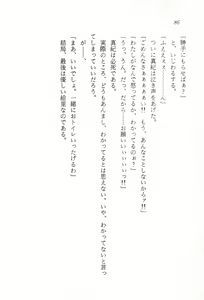 86
「勝手にもらせばぁ？」
と、いじわるする。
「ふえええぇ……」
ついに真紀は泣き声をあげた。
「ごめんなさぁぁぁぁぁい!!　もう、あんなことしないからァ!!」
「わたしがなんで怒ってるか、わかってるのぉ？」
「うっ、うん。だ、だから――お願いぃぃぃぃっ!!」
真紀は必死である。
実際のところ、どうもあんまし、わかってるとは思えない。いや、わかってないと言っ
てしまっていいだろう。
が――、
「まあ、いいでしょ。一緒におトイレいったげるわ」
結局、最後は優しい絵菜なのである。